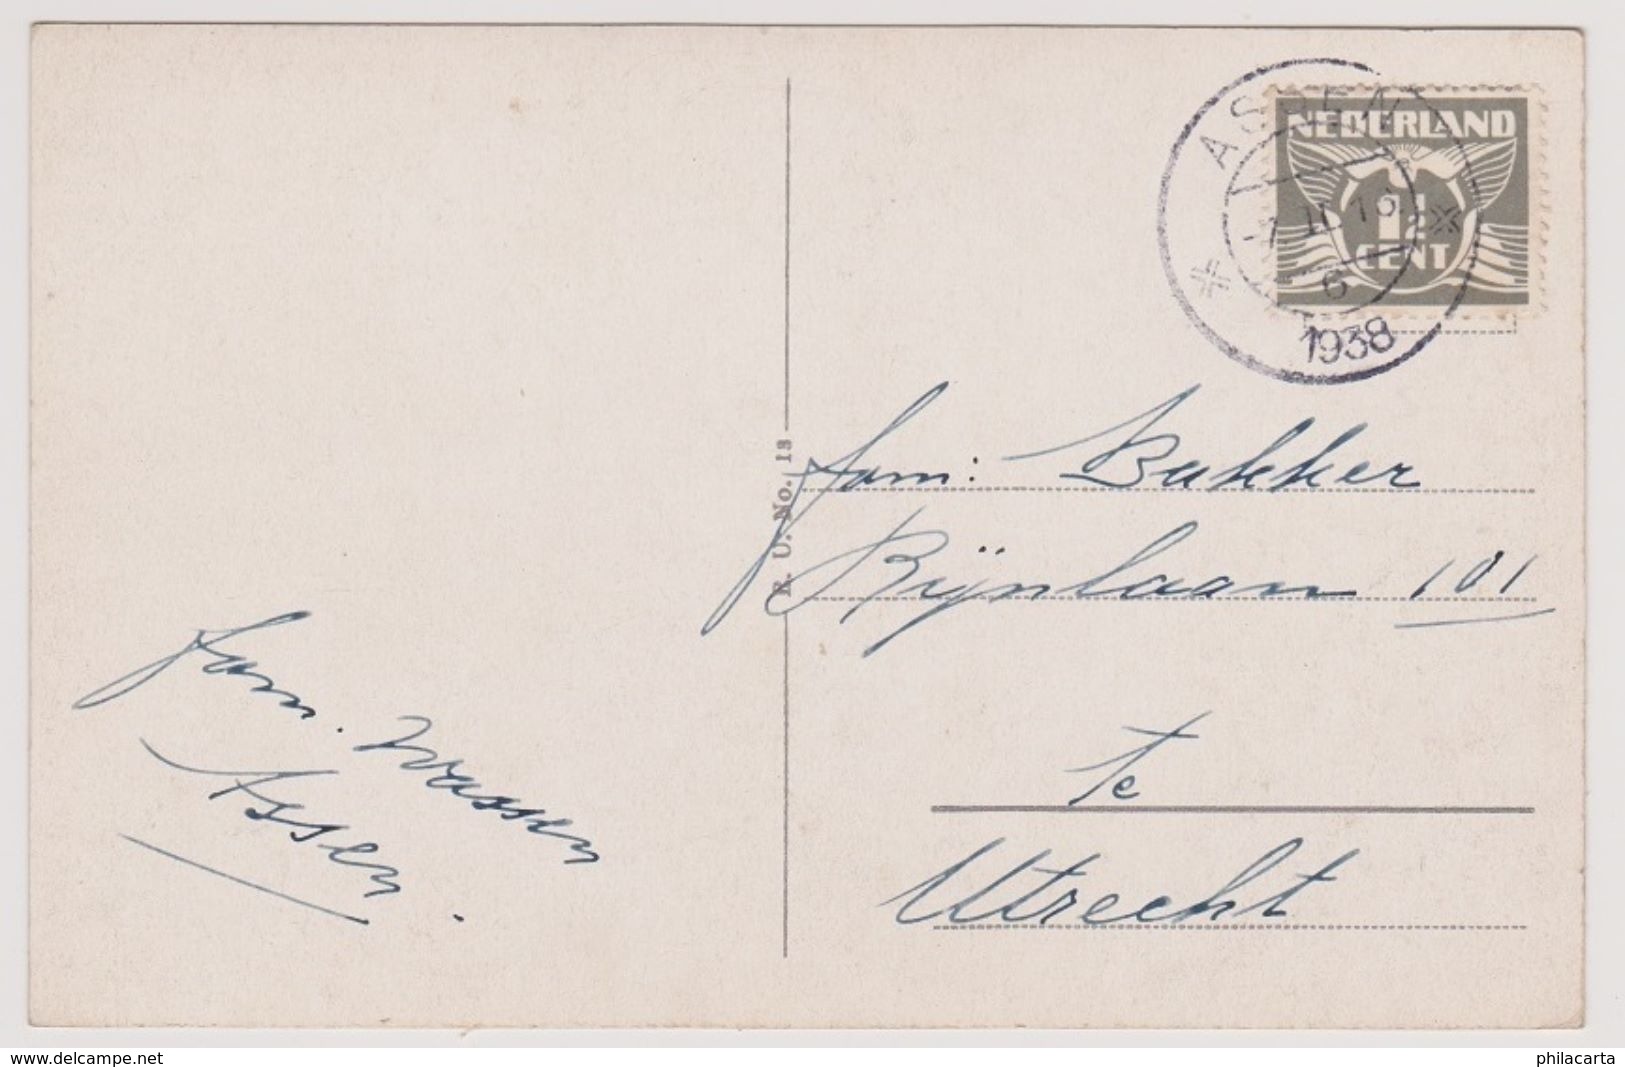 ASSEN
NEDERLAND
1½
CENT
6
1938
E. U. No. 13
fam: Bakker
Rijnlaan 101
te
Utrecht
fam. Wassen
Assen.
www.delcampe.net
philacarta